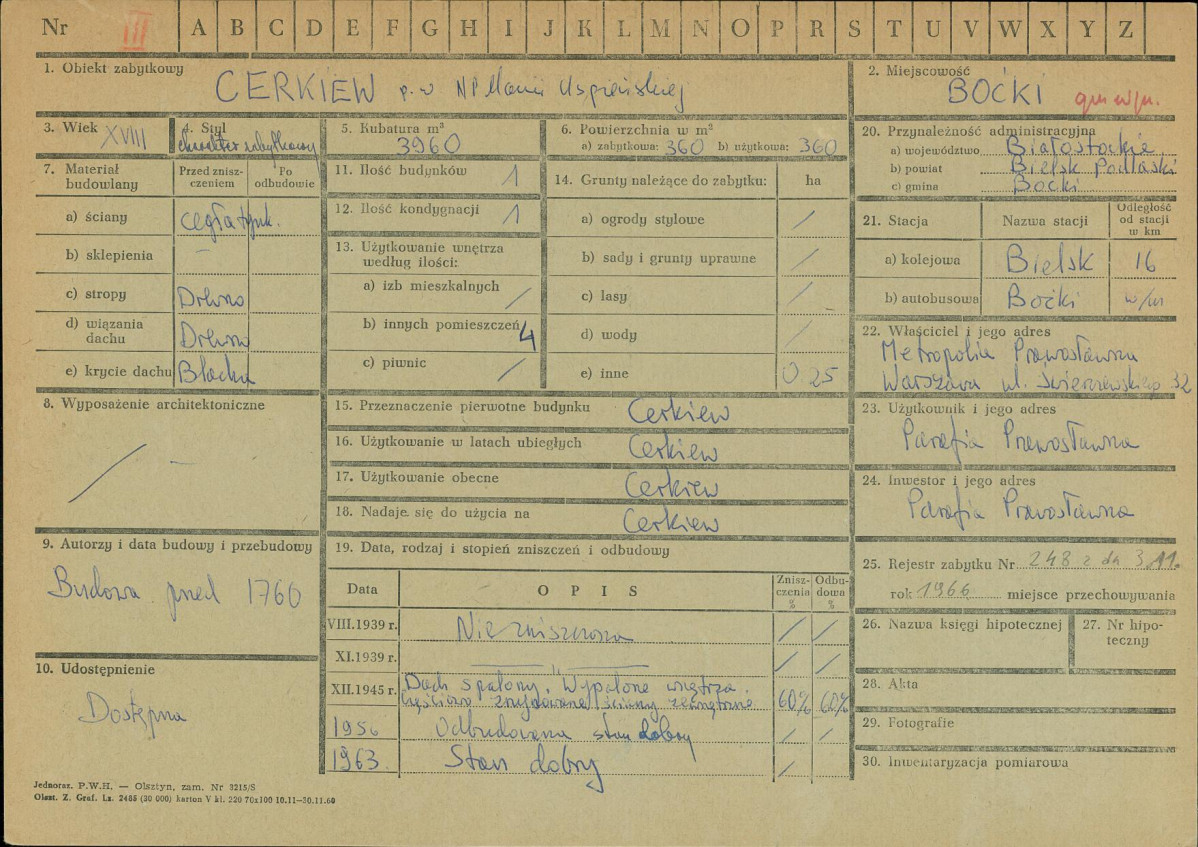 Nr III A B C D E F G H I J K L M N O P R S T U V W X Y Z
1. Obiekt zabytkowy
CERKIEW p.w NP Marii Uspieńskiej
2. Miejscowość
BOĆKI
3. Wiek XVIII
4. Styl
charakter zabytkowy
5. Kubatura m³
3960
6. Powierzchnia w m²
a) zabytkowa: 360 b) użytkowa: 360
7. Materiał budowlany
Przed znisz-
czeniem
Po
odbudowie
a) ściany cegła tynk.
b) sklepienia —
c) stropy Drewno
d) wiązania
dachu Drewno
e) krycie dachu Blacha
8. Wyposażenie architektoniczne
/ —
9. Autorzy i data budowy i przebudowy
Budowa przed 1760
10. Udostępnienie
Dostępna
11. Ilość budynków 1
12. Ilość kondygnacji 1
13. Użytkowanie wnętrza
według ilości:
a) izb mieszkalnych /
b) innych pomieszczeń 4
c) piwnic /
14. Grunty należące do zabytku: ha
a) ogrody stylowe /
b) sady i grunty uprawne /
c) lasy /
d) wody /
e) inne 0 25
15. Przeznaczenie pierwotne budynku Cerkiew
16. Użytkowanie w latach ubiegłych Cerkiew
17. Użytkowanie obecne Cerkiew
18. Nadaje się do użycia na Cerkiew
19. Data, rodzaj i stopień zniszczeń i odbudowy
Data OPIS Znisz-
czenia
% Odbu-
dowa
%
VIII.1939 r. Nie zniszczona / /
XI.1939 r. — " — / /
XII.1945 r. Dach spalony. Wypalone wnętrza.
Częściowo zrujnowane ściany zewnętrzne 60% 60%
1956 Odbudowana stan dobry / /
1963. Stan dobry /
20. Przynależność administracyjna
a) województwo Białostockie
b) powiat Bielsk Podlaski
c) gmina Boćki
21. Stacja Nazwa stacji Odległość
od stacji
w km
a) kolejowa Bielsk 16
b) autobusowa Boćki w/m
22. Właściciel i jego adres
Metropolia Prawosławna
Warszawa ul. Świerczewskiego 52
23. Użytkownik i jego adres
Parafia Prawosławna
24. Inwestor i jego adres
Parafia Prawosławna
25. Rejestr zabytku Nr 248 z dn 3.11.
rok 1966 miejsce przechowywania
26. Nazwa księgi hipotecznej
27. Nr hipo-
teczny
28. Akta
29. Fotografie
30. Inwentaryzacja pomiarowa
Jednoraz. P.W.H. — Olsztyn, zam. Nr 3215/S
Olszt. Z. Graf. Lz. 2485 (30 000) karton V kl. 220 70x100 10.11—30.11.60